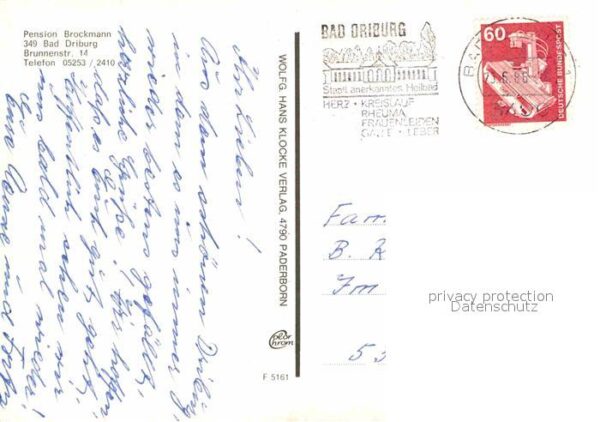 Pension Brockmann
349 Bad Driburg
Brunnenstr. 14
Telefon 05253 / 2410
Ihr Lieben!
Aus dem schönen Driburg,
in dem es uns immer
wieder bestens gefällt,
herzliche Grüße. Wir hoffen,
daß es Euch gut geht.
Hoffentlich sehen wir
uns bald mal wieder!
Eure
WOLFG. HANS KLOCKE VERLAG, 4790 PADERBORN
color
chrom
F 5161
BAD DRIBURG
Staatl. anerkanntes Heilbad
HERZ • KREISLAUF
RHEUMA
FRAUENLEIDEN
GALLE • LEBER
60
DEUTSCHE BUNDESPOST
Fam.
B. K
Im
53
privacy protection
Datenschutz